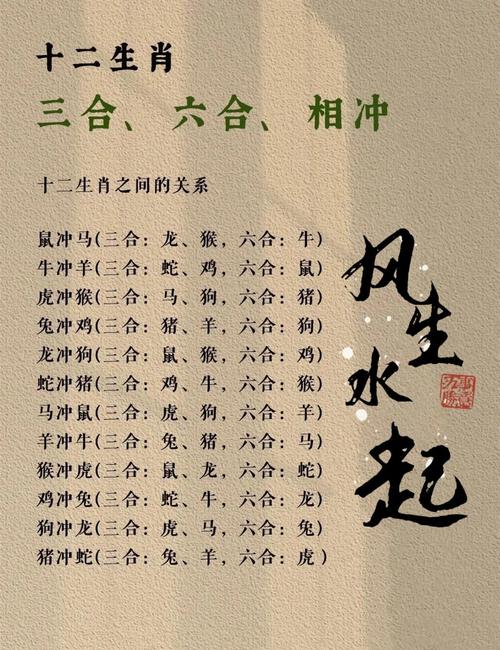 十二生肖
三合、六合、相冲
十二生肖之间的关系
鼠冲马(三合：龙、猴，六合：牛)
牛冲羊(三合：蛇、鸡，六合：鼠)
虎冲猴(三合：马、狗，六合：猪)
兔冲鸡(三合：猪、羊，六合：狗)
龙冲狗(三合：鼠、猴，六合：鸡)
蛇冲猪(三合：鸡、牛，六合：猴)
马冲鼠(三合：虎、狗，六合：羊)
羊冲牛(三合：兔、猪，六合：马)
猴冲虎(三合：鼠、龙，六合：蛇)
鸡冲兔(三合：蛇、牛，六合：龙)
狗冲龙(三合：虎、马，六合：兔)
猪冲蛇(三合：兔、羊，六合：虎)
风生水起